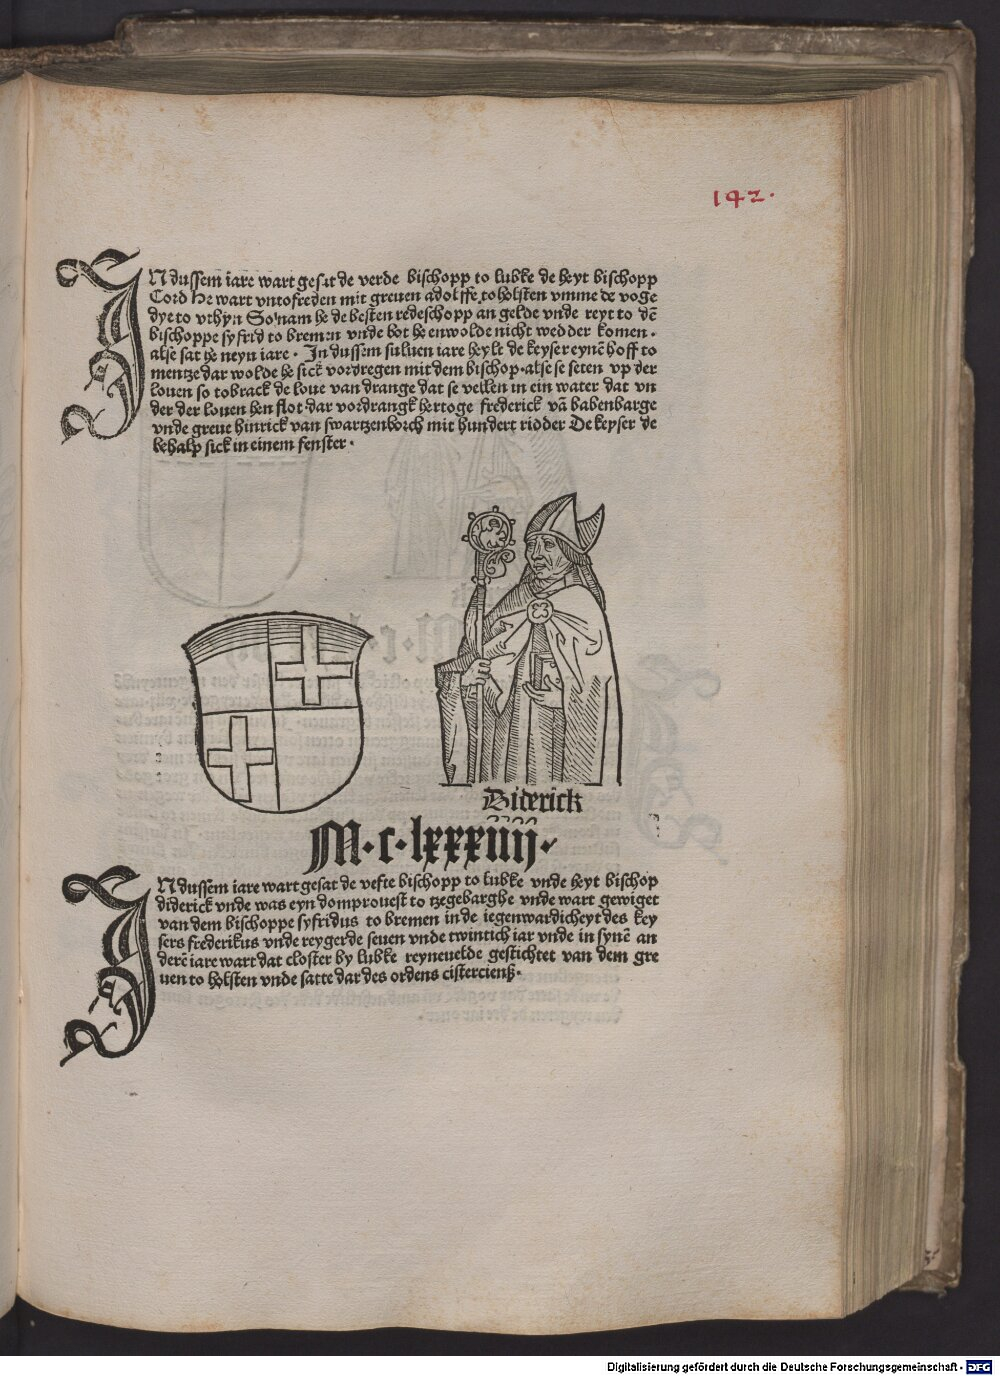 142.
INdussem iare wart gesat de verde bischopp to lubke de heyt bischopp
Cord He wart vntofreden mit greuen adolffe to holsten vmme de voge
dye to vthyn So nam he de besten redeschopp an gelde vnde reyt to dē
bischoppe syfrid to bremen vnde bot he enwolde nicht wedder komen.
alse sat he neyn iare. In dussem suluen iare heylt de keyser eynē hoff to
mentze dar wolde he sick vordregen mit dem bischop. alse se seten vp der
louen so tobrack de loue van drange dat se vellen in ein water dat vn
der der louen hen flot. dar vordrangk hertoge frederick vā babenbarge
vnde greue hinrick van swartzenborch mit hundert ridder De keyser de
behalp sick in einem fenster.
Diderick
M.c.lxxxiiij.
INdussem iare wart gesat de vefte bischopp to lubke vnde heyt bischop
diderick vnde was eyn domprouest to tzegebarghe vnde wart gewiget
van dem bischoppe syfridus to bremen in de iegenwardicheyt des key
sers frederikus vnde reygerde seuen vnde twintich iar vnde in synē an
derē iare wart dat closter by lubke reyneuelde gestichtet van dem gre
uen to holsten vnde satte dar des ordens cistercienß.
Digitalisierung gefördert durch die Deutsche Forschungsgemeinschaft - DFG